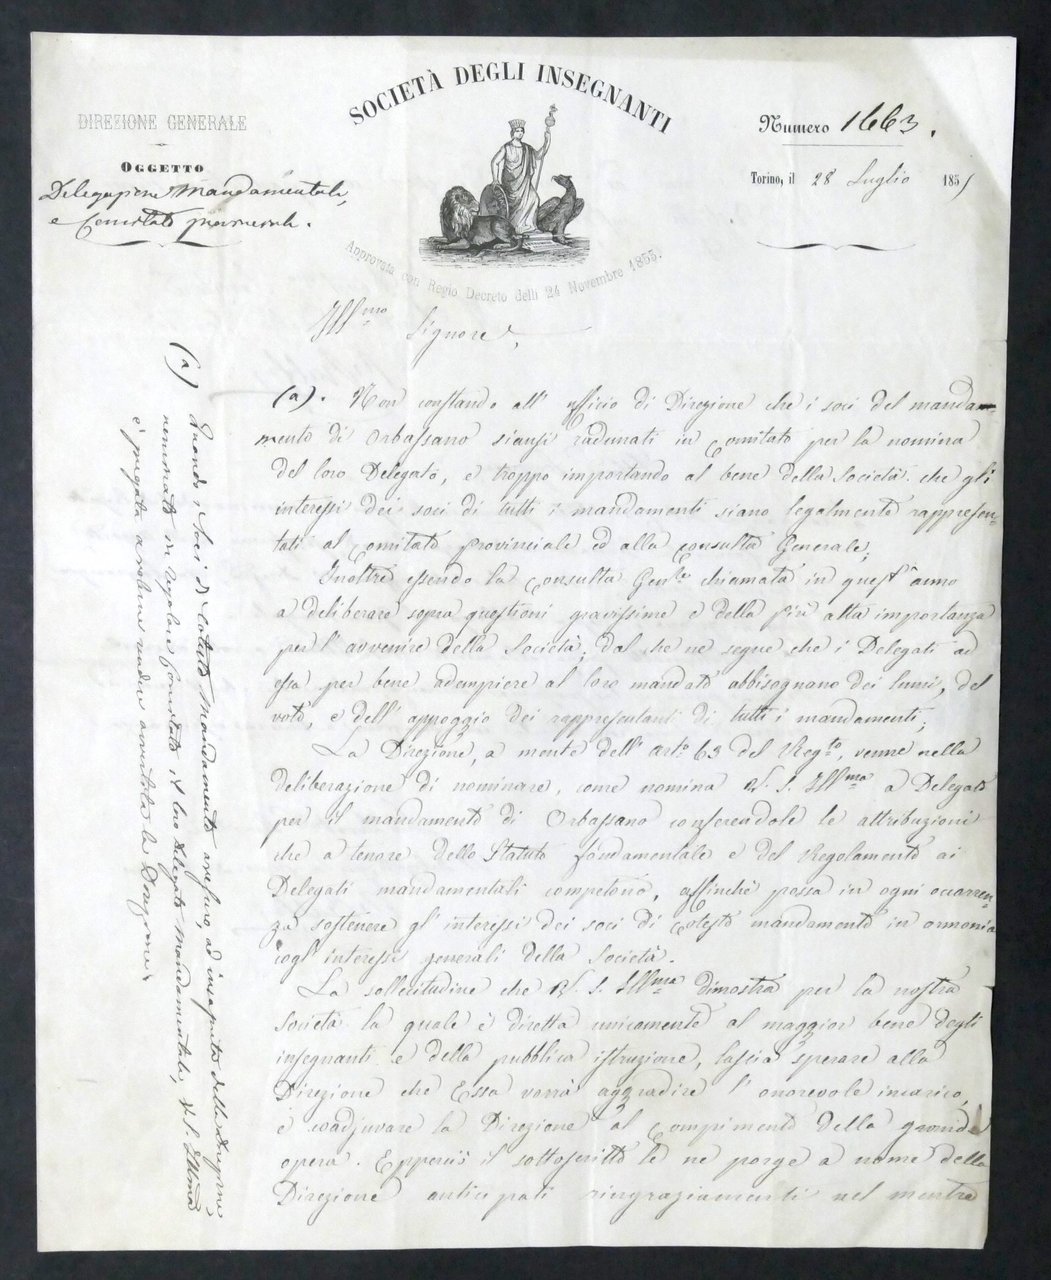 SOCIETÀ DEGLI INSEGNANTI
DIREZIONE GENERALE
OGGETTO
Delegazione Mandamentale,
e Comitato provinciale.
Numero 1663.
Torino, il 28 Luglio 185
Approvata con Regio Decreto delli 24 Novembre 1855.
Ill.mo Signore,
(a). Non constando all' ufficio di Direzione che i soci del manda-
mento di Orbassano siansi radunati in Comitato per la nomina
del loro Delegato, e troppo importando al bene della Società che gli
interessi dei soci di tutti i mandamenti siano legalmente rappresen-
tati al Comitato provinciale ed alla Consulta Generale;
Inoltre essendo la Consulta Gen.le chiamata in quest' anno
a deliberare sopra questioni gravissime e della più alta importanza
per l' avvenire della Società; dal che ne segue che i Delegati ad
essa per bene adempiere al loro mandato abbisognano dei lumi, del
voto, e dell' appoggio dei rappresentanti di tutti i mandamenti;
La Direzione, a mente dell' art.o 63 del Reg.to, venne nella
deliberazione di nominare, come nomina V. S. Ill.ma a Delegato
per il mandamento di Orbassano conferendole le attribuzioni
che a tenore dello Statuto fondamentale e del Regolamento ai
Delegati mandamentali competono, affinchè possa in ogni occorren-
za sostenere gl' interessi dei soci di cotesto mandamento in armonia
cogl' interessi generali della Società.
La sollecitudine che V. S. Ill.ma dimostra per la nostra
Società la quale è diretta unicamente al maggior bene degli
insegnanti e della pubblica istruzione, lascia sperare alla
Direzione che Essa vorrà aggradire l' onorevole incarico,
e coadjuvare la Direzione al compimento della grand'
opera. Epperciò il sottoscritto le ne porge a nome della
Direzione anticipati ringraziamenti nel mentre
(a) Quando i Soci di cotesto Mandamento avessero, ad insaputa della Direzione,
nominato in regolare Comitato il loro Delegato Mandamentale, V. S. Ill.ma
è pregata a volerne rendere avvertita la Direzione.